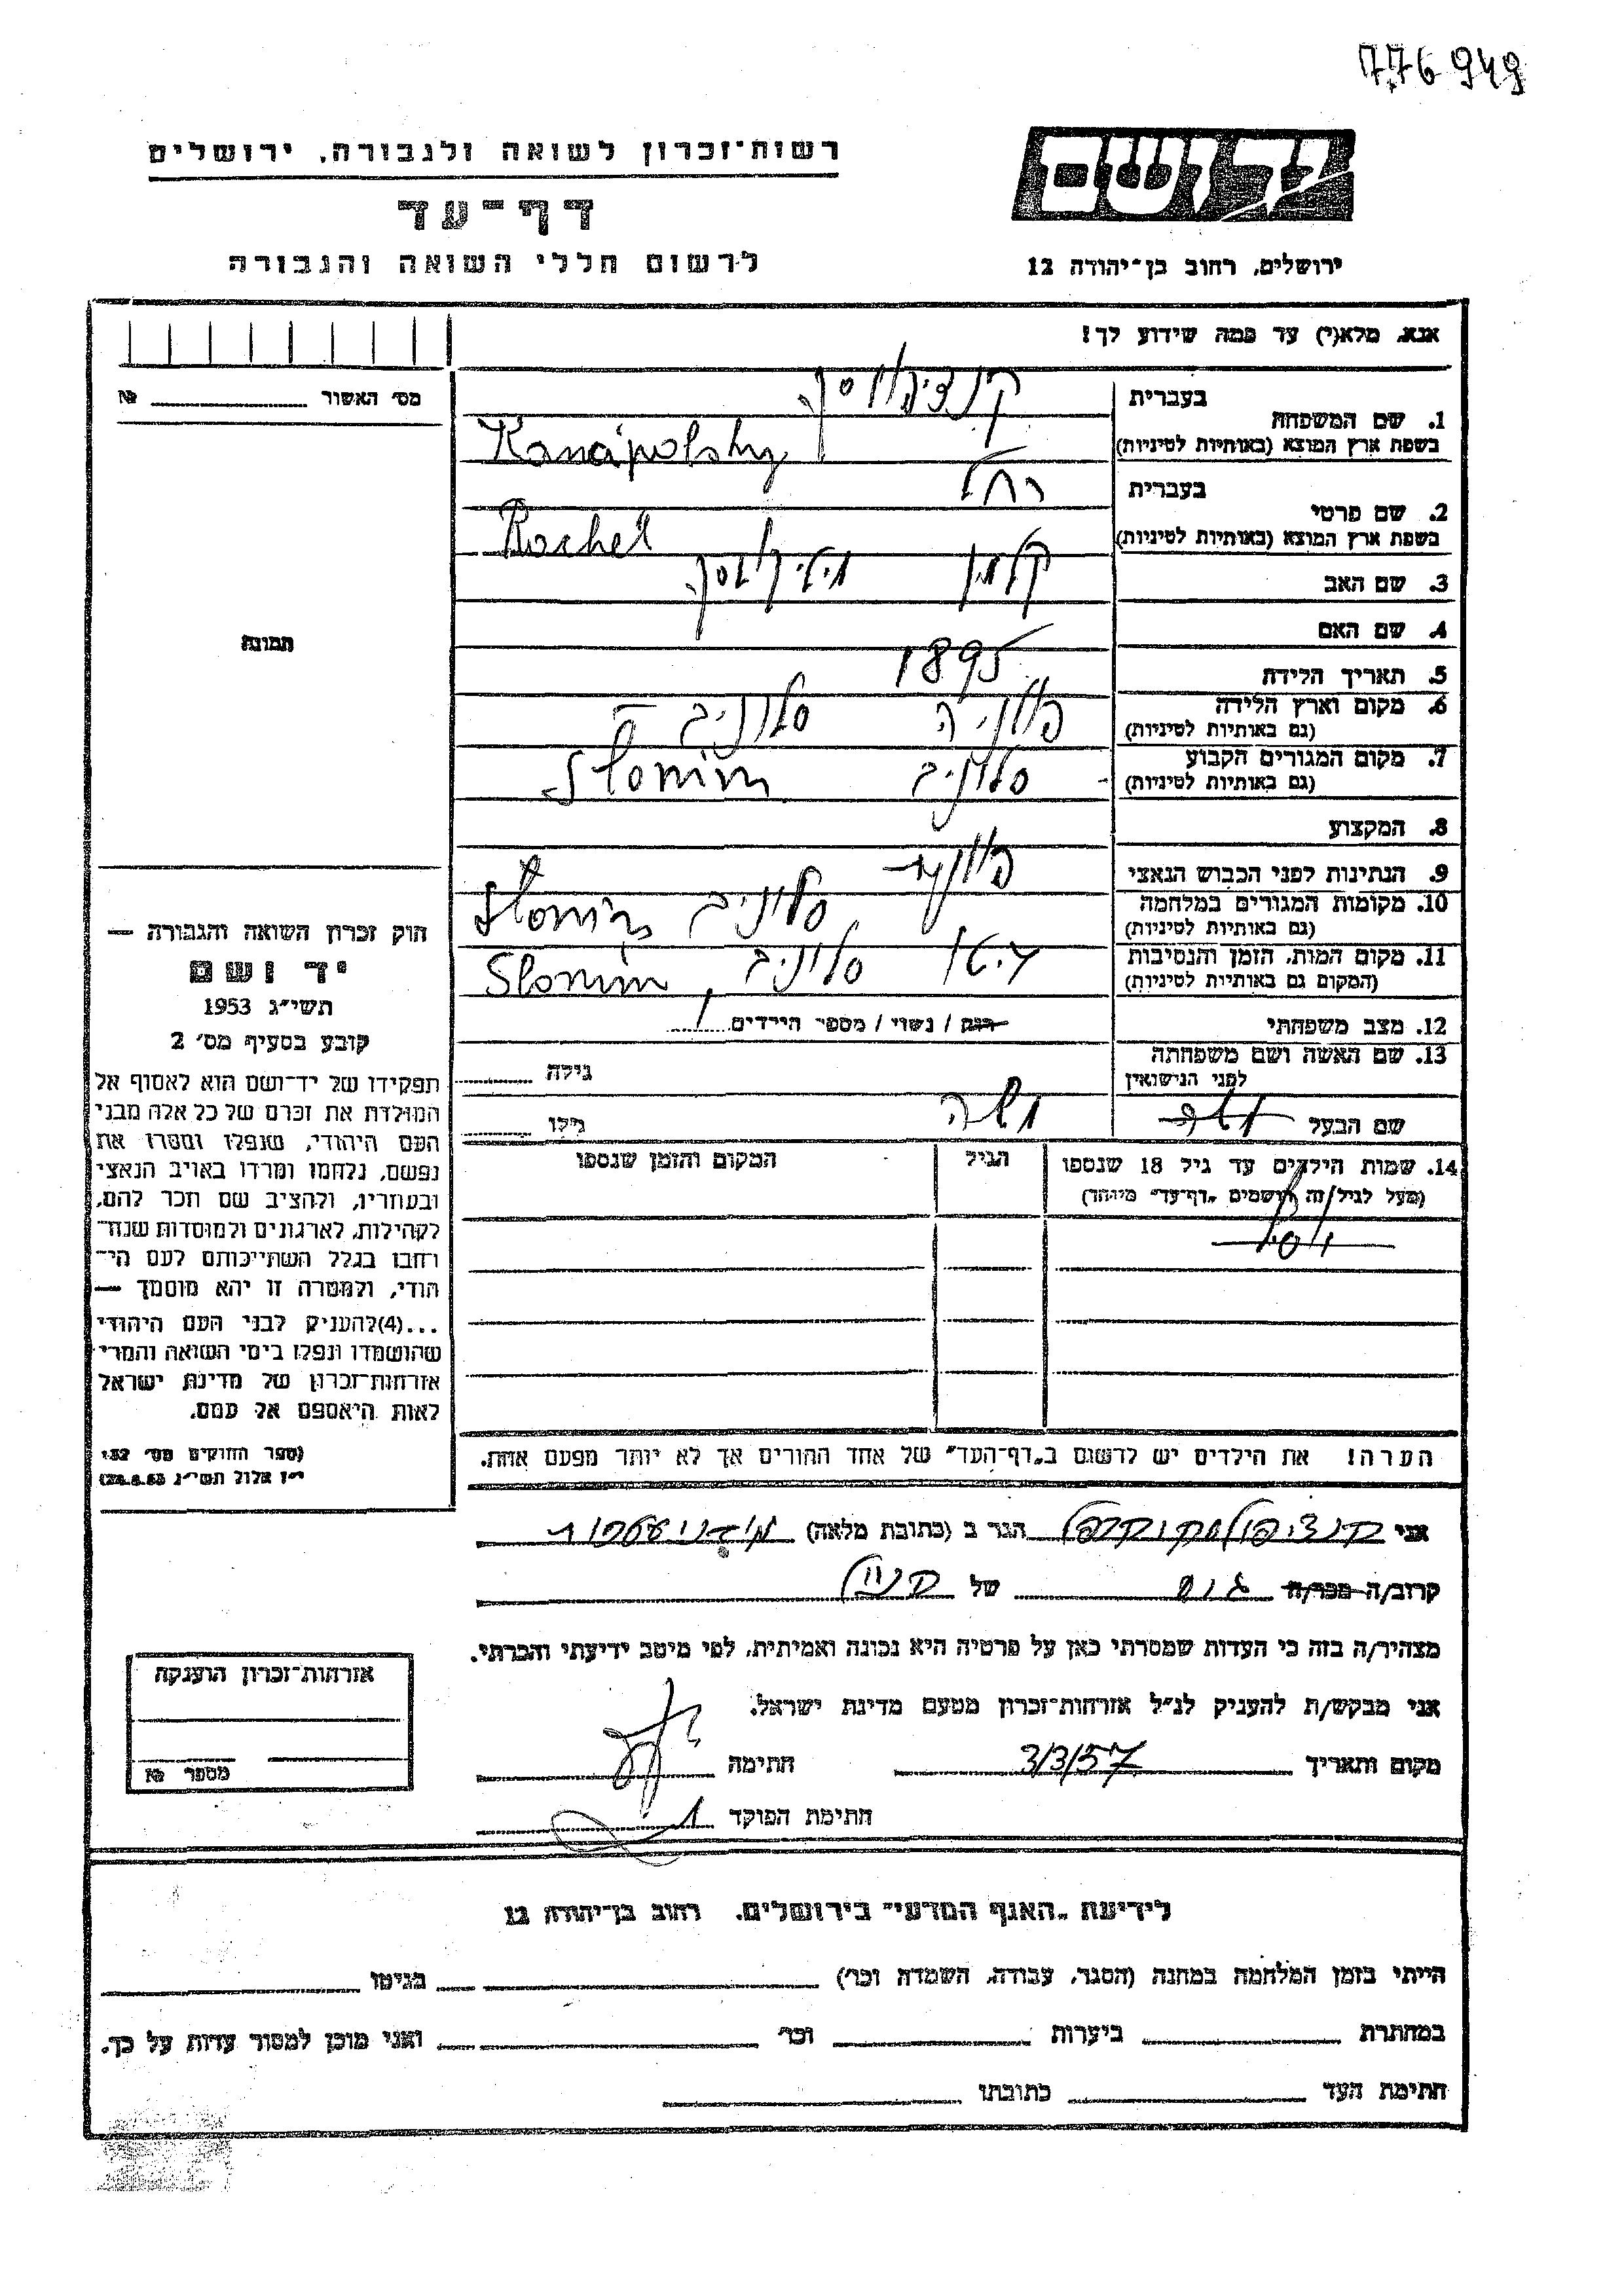 776949
רשות־זכרון לשואה ולגבורה, ירושלים
דף־עד
לרשום חללי השואה והגבורה
יד ושם
ירושלים, רחוב בן־יהודה 12
אנא, מלא(י) עד כמה שידוע לך!
מס׳ האשור № 
1. שם המשפחה
בעברית
בשפת ארץ המוצא (באותיות לטיניות) Kanapolsky
2. שם פרטי
בעברית רחל
בשפת ארץ המוצא (באותיות לטיניות) Rachel
3. שם האב קלמן
4. שם האם
5. תאריך הלידה 1895
6. מקום וארץ הלידה פולניה סלונים
(גם באותיות לטיניות)
7. מקום המגורים הקבוע סלונים Slonim
(גם באותיות לטיניות)
8. המקצוע
9. הנתינות לפני הכבוש הנאצי פולנית
10. מקומות המגורים במלחמה סלונים Slonim
(גם באותיות לטיניות)
11. מקום המות, הזמן והנסיבות גיטו סלונים, Slonim
(המקום גם באותיות לטיניות)
12. מצב משפחתי רוק / נשוי / מספר הילדים 1
13. שם האשה ושם משפחתה
לפני הנישואין גילה
שם הבעל משה גילו
14. שמות הילדים עד גיל 18 שנספו הגיל המקום והזמן שנספו
(מעל לגיל זה רושמים „דף־עד" מיוחד)
הערה! את הילדים יש לרשום ב„דף־העד" של אחד ההורים אך לא יותר מפעם אחת.
תמונה
חוק זכרון השואה והגבורה —
יד ושם
תשי״ג 1953
קובע בסעיף מס׳ 2
תפקידו של יד־ושם הוא לאסוף אל
המולדת את זכרם של כל אלה מבני
העם היהודי, שנפלו ומסרו את
נפשם, נלחמו ומרדו באויב הנאצי
ובעוזריו, ולהציב שם וזכר להם,
לקהילות, לארגונים ולמוסדות שנח־
רחבו בגלל השתייכותם לעם הי־
הודי, ולמטרה זו יהא מוסמך —
...(4)להעניק לבני העם היהודי
שהושמדו ונפלו בימי השואה והמרי
אזרחות־זכרון של מדינת ישראל
לאות היאספם אל עמם.
(ספר החוקים מס׳ 132,
י״ז אלול תשי״ג 28.8.53)
אני הגר ב (כתובת מלאה)
קרוב/ה מכר/ה של
מצהיר/ה בזה כי העדות שמסרתי כאן על פרטיה היא נכונה ואמיתית, לפי מיטב ידיעתי והכרתי.
אני מבקש/ת להעניק לנ״ל אזרחות־זכרון מטעם מדינת ישראל.
מקום ותאריך 3/3/57 חתימה
חתימת הפוקד
אזרחות־זכרון הוענקה
מספר №
לידיעת „האגף המדעי" בירושלים, רחוב בן־יהודה 12
הייתי בזמן המלחמה במחנה (הסגר, עבודה, השמדה וכו׳) בגיטו
במחתרת ביערות וכו׳ ואני מוכן למסור עדות על כך.
חתימת העד כתובתו